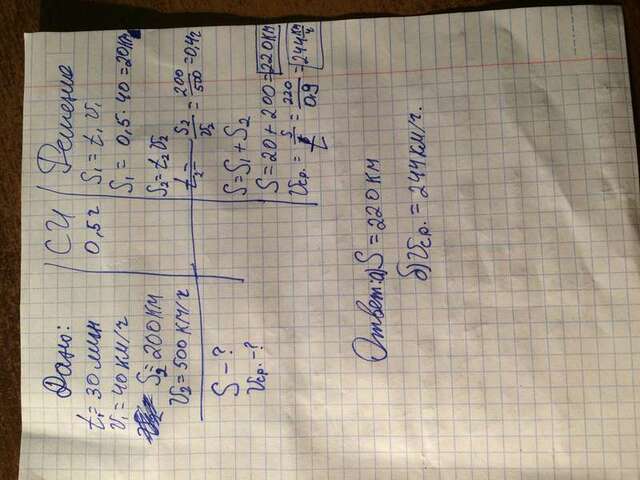 Дано:
t₁= 30 мин
v₁= 40 км/ч
S₂= 200 км
v₂= 500 км/ч
S – ?
vср. – ?
СИ
0,5 ч
Решение
S₁ = t₁ v₁
S₁ = 0,5 · 40 = 20 км
S₂ = t₂ v₂
t₂ = S₂/v₂ = 200/500 = 0,4 ч
S = S₁ + S₂
S = 20 + 200 = 220 км
vср. = S/t = 220/0,9 = 244 км/ч
Ответ: а) S = 220 км
б) vср. = 244 км/ч.